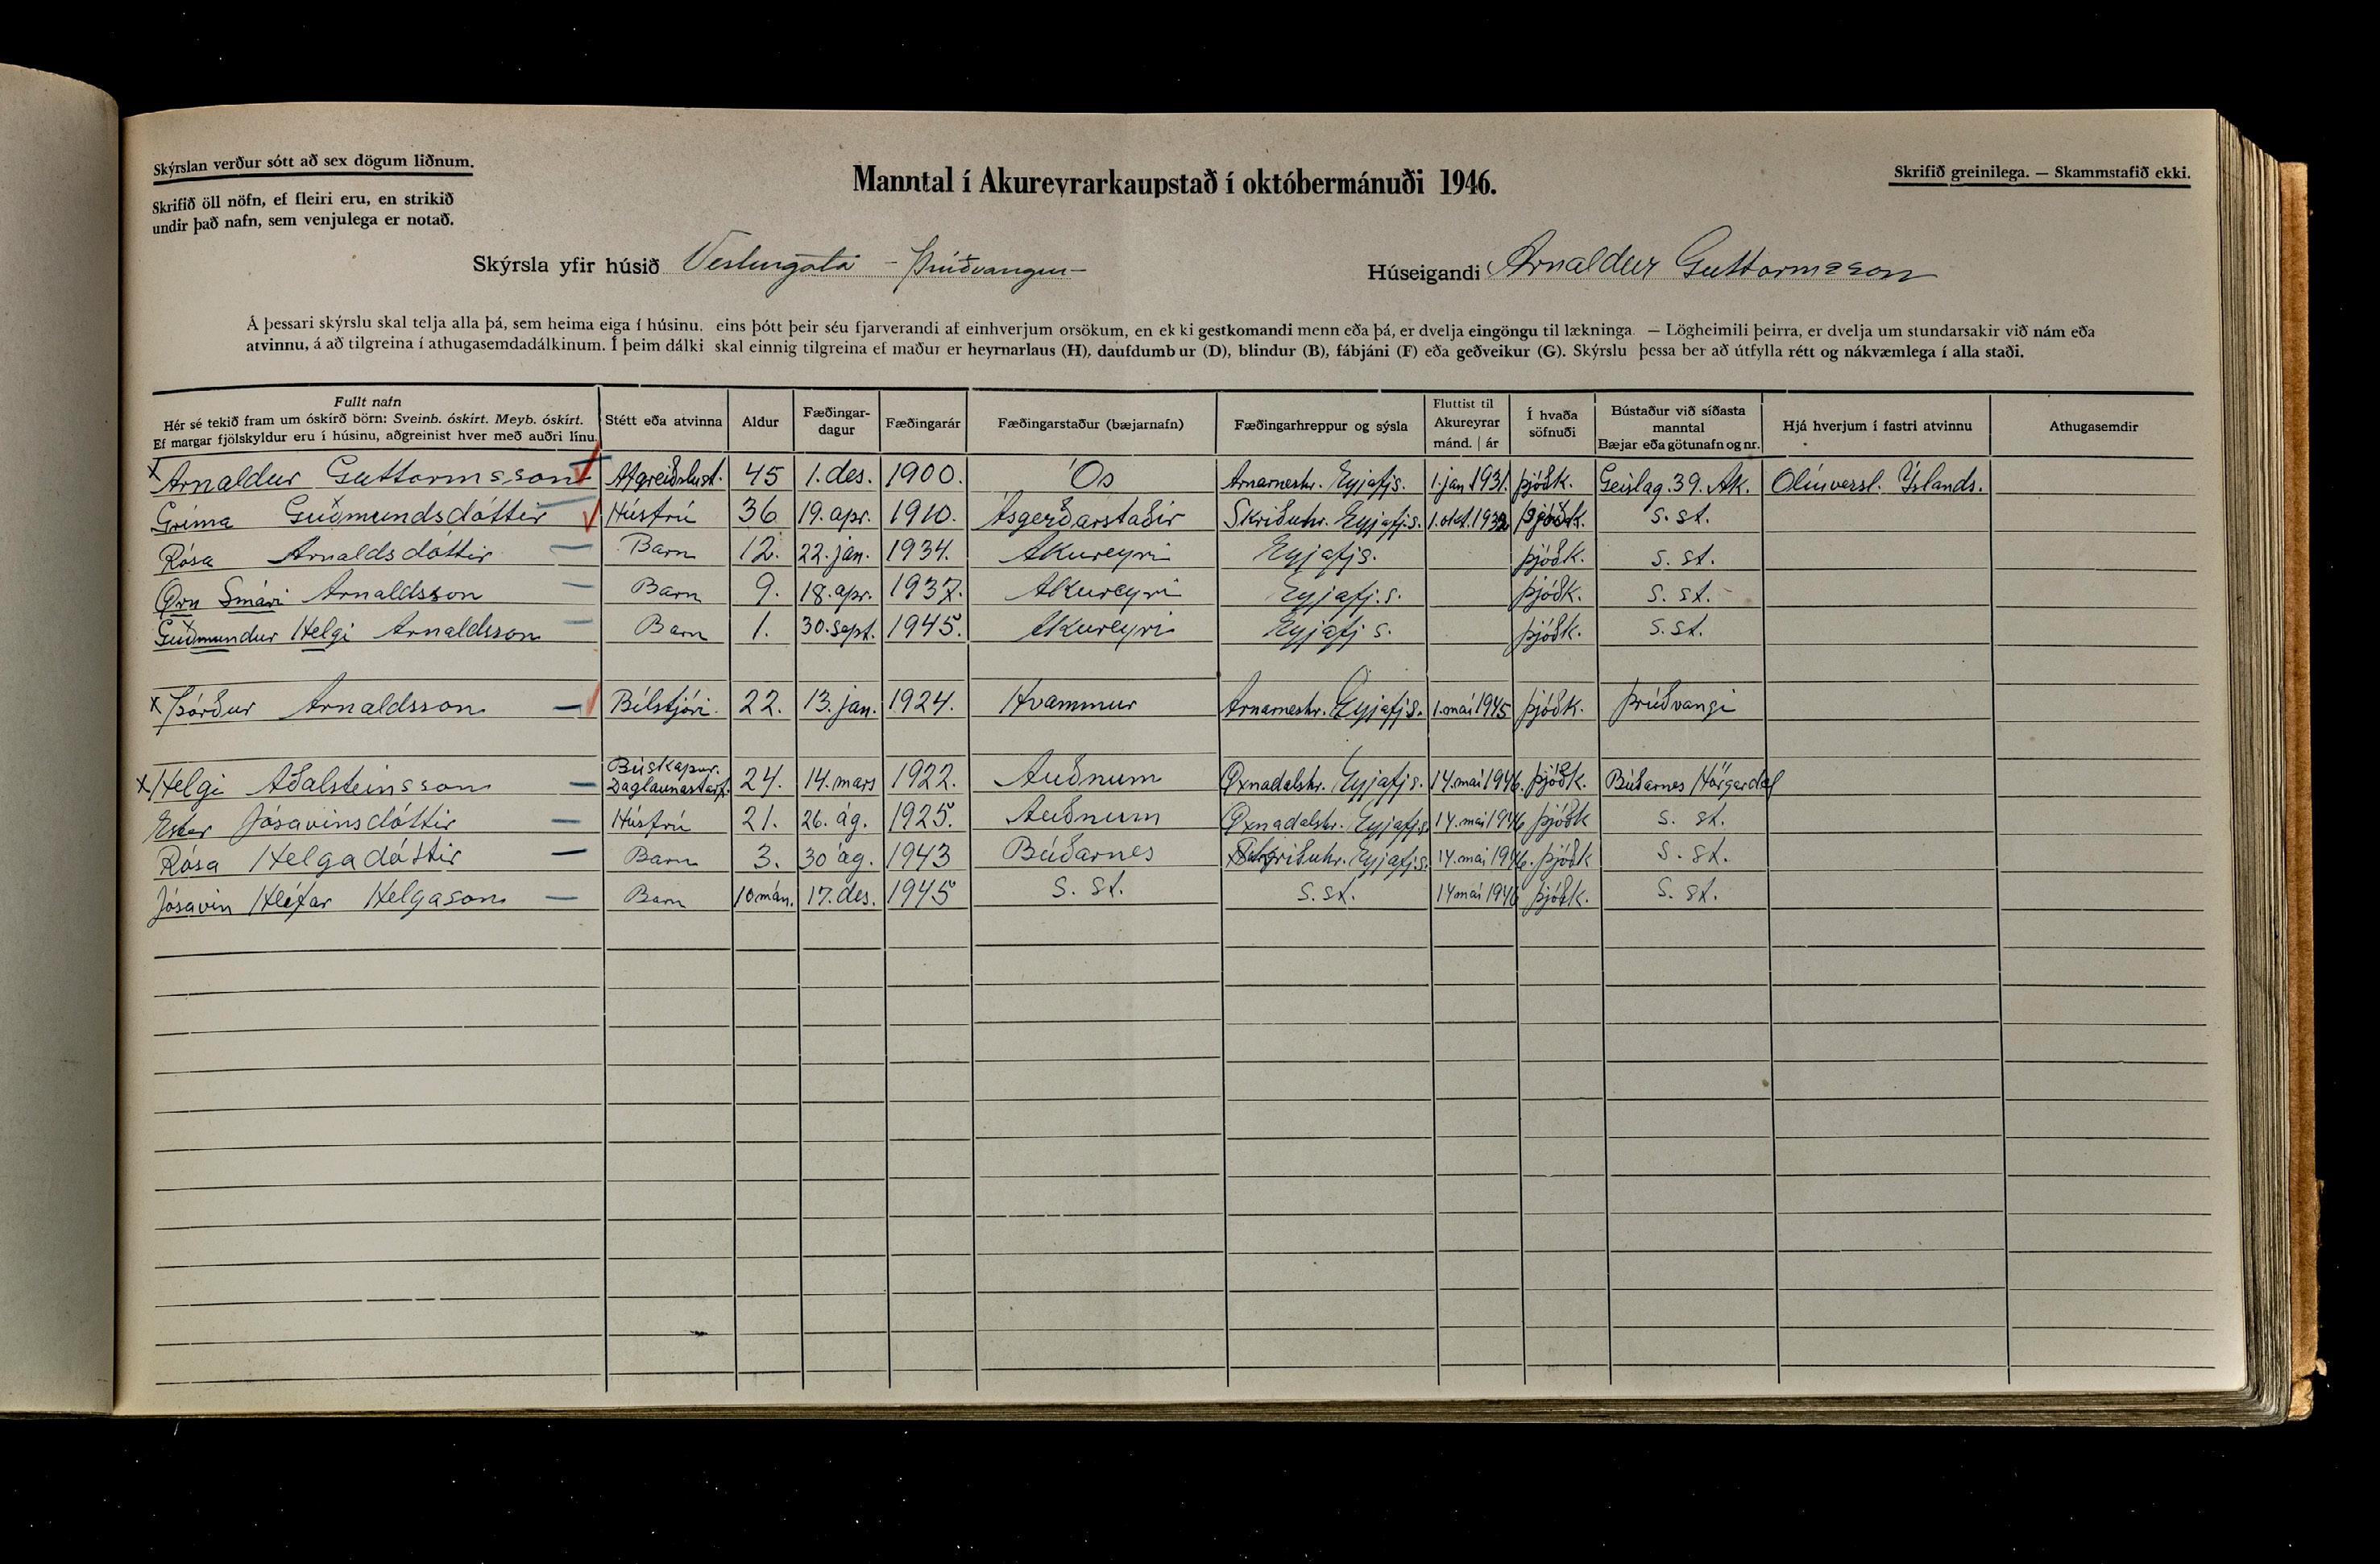 Skýrslan verður sótt að sex dögum liðnum.
Skrifið öll nöfn, ef fleiri eru, en strikið
undir það nafn, sem venjulega er notað.
Manntal í Akureyrarkaupstað í októbermánuði 1946.
Skrifið greinilega. — Skammstafið ekki.
Skýrsla yfir húsið Vesturgata - Þrúðvangur -
Húseigandi Arnaldur Guttormsson
Á þessari skýrslu skal telja alla þá, sem heima eiga í húsinu, eins þótt þeir séu fjarverandi af einhverjum orsökum, en ekki gestkomandi menn eða þá, er dvelja eingöngu til lækninga. — Lögheimili þeirra, er dvelja um stundarsakir við nám eða
atvinnu, á að tilgreina í athugasemdadálkinum. Í þeim dálki skal einnig tilgreina ef maður er heyrnarlaus (H), daufdumbur (D), blindur (B), fábjáni (F) eða geðveikur (G). Skýrslu þessa ber að útfylla rétt og nákvæmlega í alla staði.
Fullt nafn
Hér sé tekið fram um óskírð börn: Sveinb. óskírt. Meyb. óskírt.
Ef margar fjölskyldur eru í húsinu, aðgreinist hver með auðri línu.
Stétt eða atvinna
Aldur
Fæðingar-
dagur
Fæðingarár
Fæðingarstaður (bæjarnafn)
Fæðingarhreppur og sýsla
Fluttist til
Akureyrar
mánd. | ár
Í hvaða
söfnuði
Bústaður við síðasta
manntal
Bæjar eða götunafn og nr.
Hjá hverjum í fastri atvinnu
Athugasemdir
x Arnaldur Guttormsson Afgreiðslust. 45 1. des. 1900. Ós Arnarneshr. Eyjafjs. 1. jan 1931. þjóðk. Geislag. 39. Ak. Olíuversl. Íslands.
Gríma Guðmundsdóttir Húsfrú 36 19. apr. 1910. Ásgerðarstaðir Skriðuhr. Eyjafj.s. 1. okt. 1932 þjóðk. s. st.
Rósa Arnaldsdóttir Barn 12. 22. jan. 1934. Akureyri Eyjafjs. þjóðk. s. st.
Örn Smári Arnaldsson Barn 9. 18. apr. 1937. Akureyri Eyjafj.s. þjóðk. s. st.
Guðmundur Helgi Arnaldsson Barn 1. 30. sept. 1945. Akureyri Eyjafj s. þjóðk. s. st.
x Þórður Arnaldsson Bílstjóri. 22. 13. jan. 1924. Hvammur Arnarneshr. Eyjafj.s. 1. maí 1945 þjóðk. Þrúðvangi
x Helgi Aðalsteinsson Búskapur. Daglaunastarf. 24. 14. mars 1922. Auðnum Öxnadalshr. Eyjafjs. 14. maí 1946. þjóðk. Búðarnes Hörgardal
Ester Jósavinsdóttir Húsfrú 21. 26. ág. 1925. Auðnum Öxnadalshr. Eyjafj.s. 14. maí 1946 þjóðk s. st.
Rósa Helgadóttir Barn 3. 30 ág. 1943 Búðarnes Skriðuhr. Eyjafj.s. 14. maí 1946. þjóðk s. st.
Jósavin Heiðar Helgason Barn 10 mán. 17. des. 1945 s. st. s. st. 14 maí 1946 þjóðk. s. st.